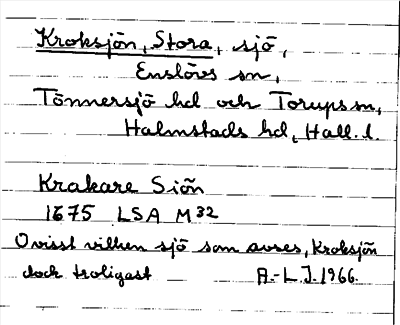 Kroksjön, Stora, sjö,
Enslövs sn,
Tönnersjö hd och Torups sn,
Halmstads hd, Hall. l.
Krakare Siön
1675 LSA M 32
Ovisst vilken sjö som avses, Kroksjön
dock troligast A.-L.J. 1966.